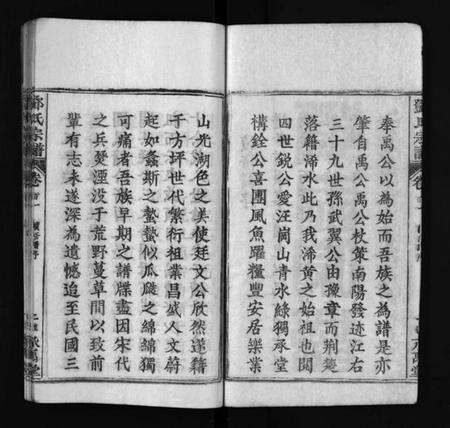 奉禹公以為始而吾族之為譜是亦
肇自禹公禹公杖策南陽發迹江右
三十九世孫武翼公由豫章而荆楚
落籍浠水此乃我浠黄之始祖也閱
四世銳公愛汪崗山青水綠獨承堂
構銓公喜團風魚躍糧豐安居樂業
山光湖色之美使廷文公欣然蓮籍
千方坪世代繁衍祖業昌盛人文蔚
起如螽斯之蟄蟄似瓜瓞之綿綿獨
可痛者吾族早期之譜牒盡因宋代
之兵燹湮没于荒野蔓草間以致前
輩有志未遂深為遺憾迨至民國三
鄧氏宗譜 卷首一